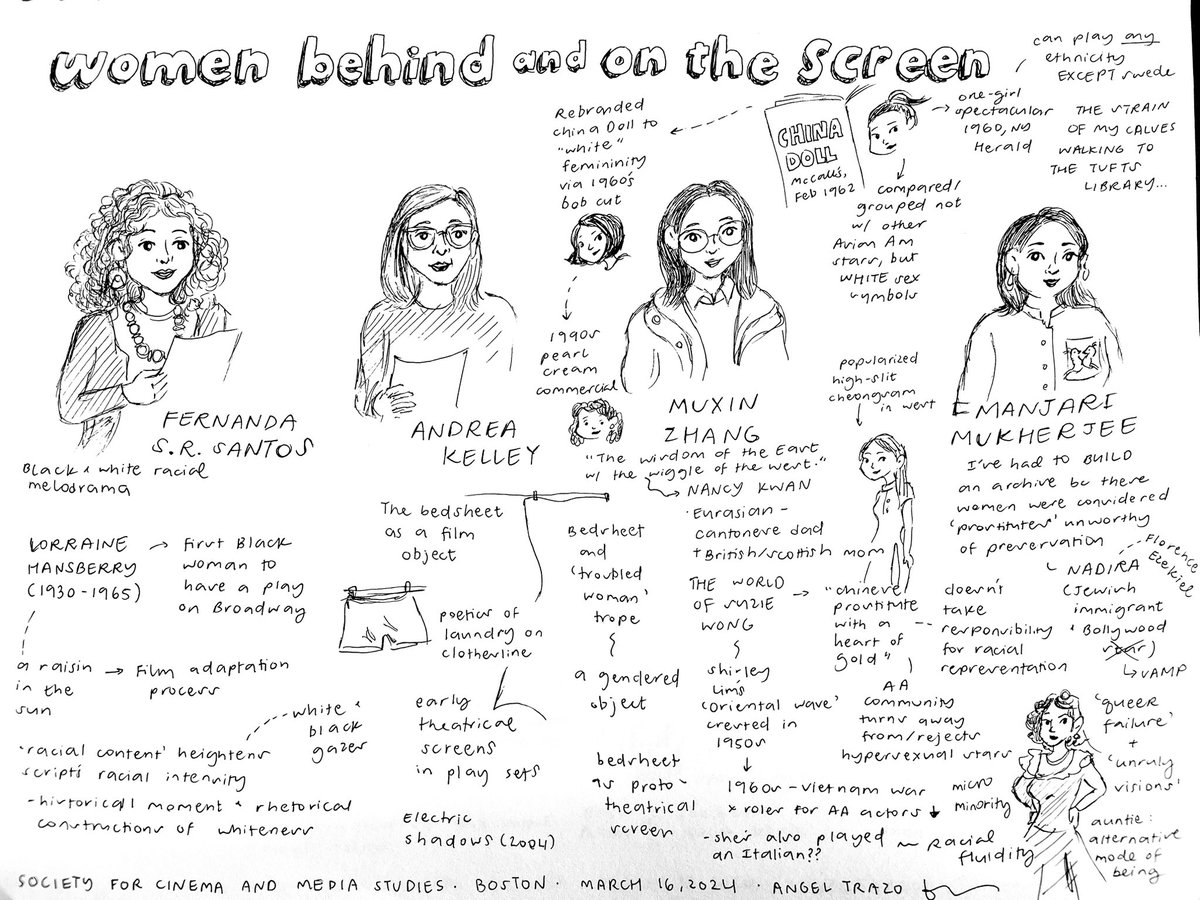 women behind and on the screen
can play any
ethnicity
EXCEPT swede
one-girl
spectacular
1960, NY
Herald
THE STRAIN
OF MY CALVES
WALKING TO
THE TUFTS
LIBRARY...
Rebranded
china Doll to
"white"
femininity
via 1960s
bob cut
CHINA
DOLL
McCalls,
Feb 1962
compared/
grouped not
w/ other
Asian Am
stars, but
WHITE sex
symbols
1990s
pearl
cream
commercial
popularized
high-slit
cheongsam
in west
FERNANDA
S.R. SANTOS
Black & white racial
melodrama
LORRAINE
MANSBERRY
(1930-1965)
First Black
woman to
have a play
on Broadway
a raisin
in the
sun
Film adaptation
process
white &
black
gazes
'racial content' heightens
script's racial intensity
-historical moment & rhetorical
constructions of whiteness
ANDREA
KELLEY
The bedsheet
as a film
object
poetics of
laundry on
clothesline
early
theatrical
screens
in play sets
Electric
shadows (2004)
Bedsheet
and
'troubled
woman'
trope
a gendered
object
bedsheet
as proto-
theatrical
screen
MUXIN
ZHANG
"The wisdom of the East
w/ the wiggle of the west."
NANCY KWAN
·Eurasian-
cantonese dad
+ British/scottish mom
THE WORLD
OF SUZIE
WONG
"chinese
prostitute
with a
heart of
gold"
shirley
Lim's
'Oriental wave'
crested in
1950s
1960s - Vietnam war
& roles for AA actors ↓
-she's also played
an Italian??
racial
fluidity
AA
community
turns away
from/rejects
hypersexual stars
doesn't
take
responsibility
for racial
representation
MANJARI
MUKHERJEE
I've had to BUILD
an archive bc these
women were considered
'prostitutes' unworthy
of preservation
NADIRA
Florence
Ezekiel
(Jewish
immigrant
& Bollywood
star)
VAMP
micro
minority
'queer
failure'
+
'unruly
visions'
auntie:
alternative
mode of
being
SOCIETY FOR CINEMA AND MEDIA STUDIES · BOSTON · MARCH 16, 2024 · ANGEL TRAZO